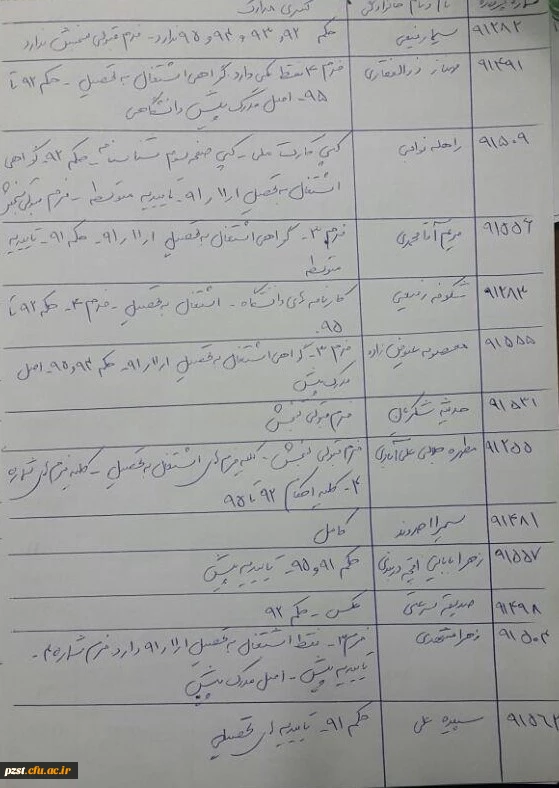 کسری مدارک
۹۱۲۸۲ سیما رفیعی حکم ۹۲ و ۹۳ و ۹۴ و ۹۵ ندارد - فرم قبولی سنجش ندارد
۹۱۴۹۱ مهناز ذوالفقاری فرم ۴ فقط یکی دارد. گواهی اشتغال به تحصیل - حکم ۹۲ تا
۹۵ - اصل مدرک پیش دانشگاهی
۹۱۵۰۹ راحله نوابی کپی کارت ملی - کپی صفحه سوم شناسنامه - حکم ۹۲. گواهی
اشتغال به تحصیل از ۱۱/۹۱ - تاییدیه متوسطه - فرم قبولی سنجش
۹۱۵۵۶ مریم آقامحمدی فرم ۳ - گواهی اشتغال به تحصیل از ۱۱/۹۱ - حکم ۹۱ - تاییدیه
متوسطه
۹۱۲۸۳ شکوفه رفیعی کارنامه های دانشگاه - اشتغال به تحصیل - فرم ۴ - حکم ۹۲ تا
۹۵
۹۱۵۵۵ معصومه عیوض زاده فرم ۳ - گواهی اشتغال به تحصیل از ۱۱/۹۱ - حکم ۹۴ و ۹۵ - اصل
مدرک پیش
۹۱۵۳۱ حدیثه فرم قبولی سنجش
۹۱۲۵۵ مطهره علی آبادی فرم قبولی سنجش - کلیه فرم های اشتغال به تحصیل - کلیه فرم های شماره
۴ - کلیه احکام ۹۲ تا ۹۵
۹۱۴۸۱ سمیرا احدوند کامل
۹۱۵۵۷ زهرا بابایی حکم ۹۱ و ۹۵ - تاییدیه پیش
۹۱۴۹۸ صدیقه عکس - حکم ۹۲
۹۱۵۰۴ زهرا مشهدی فرم ۳ - فقط اشتغال به تحصیل از ۱۱/۹۱ دارد فرم شماره ۴ -
تاییدیه پیش - اصل مدرک پیش
سپیده علی حکم ۹۱ - تاییدیه ای تحصیلی
pzst.cfu.ac.ir